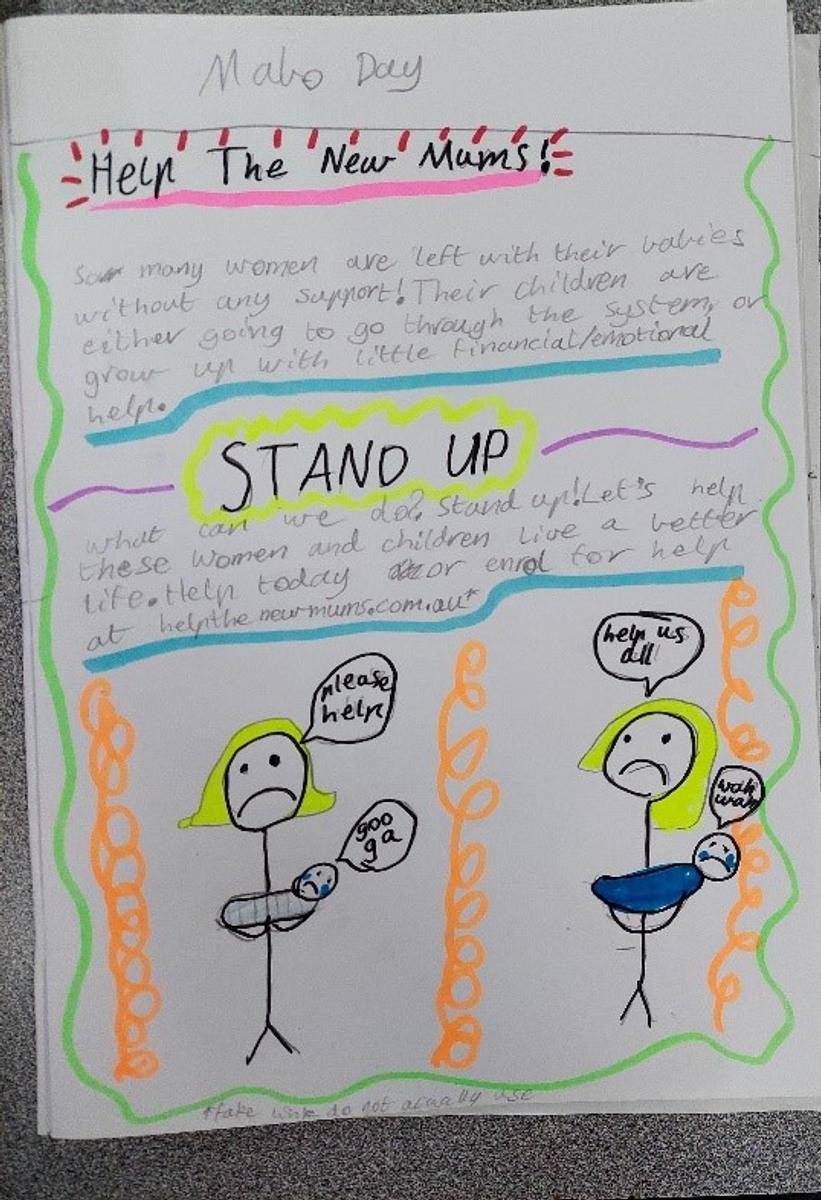 Mabo Day
Help The New Mums!
So many women are left with their babies
without any support! Their children are
either going to go through the system, or
grow up with little financial/emotional
help.
STAND UP
what can we do? Stand up! Let's help
these women and children live a better
life. Help today or enrol for help
at helpthenewmums.com.au*
please
help
goo
ga
help us
all
wah
wah
*fake link do not acually use